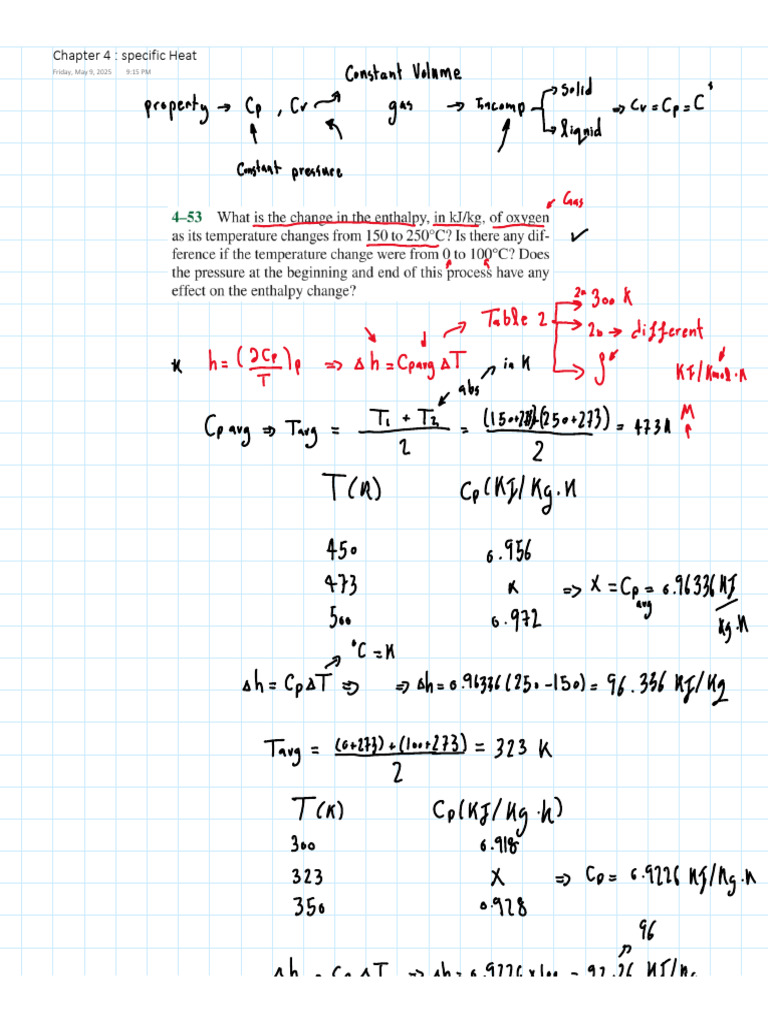 Chapter 4 : specific Heat
Friday, May 9, 2025 9:15 PM
Constant Volume
property → Cp , Cv gas → Incomp solid liquid ⇒ Cv = Cp = C
Constant pressure
Gas
4–53 What is the change in the enthalpy, in kJ/kg, of oxygen
as its temperature changes from 150 to 250°C? Is there any dif-
ference if the temperature change were from 0 to 100°C? Does
the pressure at the beginning and end of this process have any
effect on the enthalpy change?
Table 2 2a 300 K
2b → different
KJ/Kmol.K
h = (∂Cp/T)p ⇒ Δh = Cpavg ΔT
in K
abs
M
Cp avg ⇒ Tavg = T1 + T2 / 2 = (150+273)+(250+273) / 2 = 473K
T(K) Cp(KJ/Kg.K
450 0.956
473 x ⇒ X = Cp avg = 0.96336 KJ/Kg.K
500 0.972
°C = K
Δh = CpΔT ⇒ ⇒ Δh = 0.96336(250-150) = 96.336 KJ/Kg
Tavg = (0+273)+(100+273) / 2 = 323 K
T(K) Cp(KJ/Kg.K)
300 0.918
323 X ⇒ Cp = 0.9226 KJ/Kg.K
350 0.928
96
Δh = Cp ΔT ⇒ Δh = 0.9226x100 = 92.26 KJ/Kg